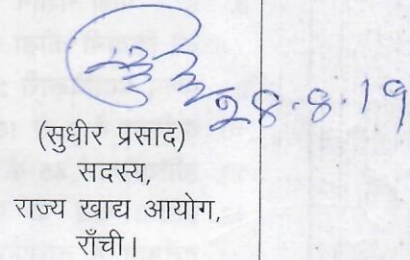 28.8.19
(सुधीर प्रसाद)
सदस्य,
राज्य खाद्य आयोग,
राँची।